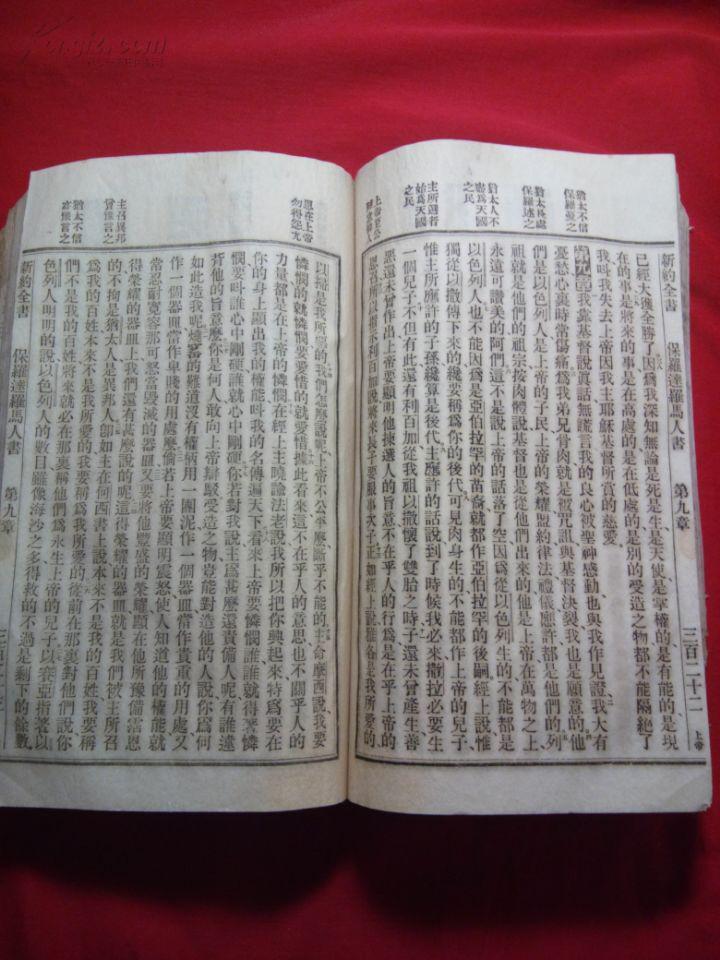 新約全書
保羅達羅馬人書
第九章
三百二十二
上帝
猶太不信
保羅憂之
猶太長處
保羅述之
猶太人不
盡爲天國
之民
主所選者
始爲天國
之民
已經大獲全勝了因爲我深知無論是死是生是天使是掌權的是有能的是現
在的事是將來的事是在高處的是在低處的是別的受造之物都不能隔絕了
我呌我失去上帝因我主耶穌基督所賞的慈愛
第九章我靠基督說眞話無謊言我的良心被聖神感動也與我作見證我大有
憂愁心裏時常傷痛爲我弟兄骨肉就是被咒詛與基督決裂我也是願意的他
們是以色列人是上帝的子民上帝的榮耀盟約律法禮儀應許都是他們的列
祖就是他們的祖宗按肉體說基督也是從他們出來的他是上帝在萬物之上
永遠可讚美的阿們這不是說上帝的話落了空因爲從以色列生的不能都是
以色列人也不能因爲是亞伯拉罕的苗裔就都作亞伯拉罕的後嗣經上說惟
獨從以撒傳下來的纔要稱爲你的後代可見肉身生的不能都作上帝的兒子
惟主所應許的子孫纔算是後代主應許的話說到了時候我必來撒拉必要生
一個兒子不但有此還有利百加從我祖以撒懷了雙胎之時子還未曾產生善
惡還未曾作出上帝要顯明他揀選人的旨意不在乎人的行爲是在乎上帝的
恩召所以指示利百加說將來長子要服事次子正如經上說雅各是我所愛的
新約全書
保羅達羅馬人書
第九章
恩在上帝
勿得怨尤
主召異邦
曾豫言之
猶太不信
亦豫言之
以掃是我所惡的我們怎麼說呢上帝不公平麼斷乎不能的主命摩西說我要
憐憫的就憐憫要愛惜的就愛惜據此看來這不在乎人的意思也不關乎人的
力量都是在上帝的憐憫在經上主曉諭法老說我所以把你興起來特爲要在
你的身上顯出我的權能呌我的名傳遍天下看來上帝要憐憫誰就得着憐
憫要呌誰心中剛硬誰就心中剛硬你若對我說主爲甚麼還責備人呢有誰違
背他的旨意麼你是何人敢向上帝辯駁受造之物豈能對造他的人說你爲何
如此造我呢燒器的難道沒有權柄用一團泥作一個器皿當作貴重的用處又
作一個器皿當作卑賤的用處麼倘若上帝要顯明震怒使人知道他的權能就
常忍耐寬容那可怒當毀滅的器皿又要將他豐盛的榮耀顯在他所豫備當恩
得榮耀的器皿上我們還有甚麼說的呢這得榮耀的器皿就是我們被主所召
的不拘是猶太人是異邦人卽如主在何西書上說本來不是我的百姓我要稱
爲我的百姓本來不是我所愛的我要稱爲我所愛的從前在那裏對他們說你
們不是我的百姓將來就必在那裏稱他們爲永生上帝的兒子以賽亞指著以
色列人明明的說以色列人的數目雖像海沙之多得救的不過是剩下的餘數